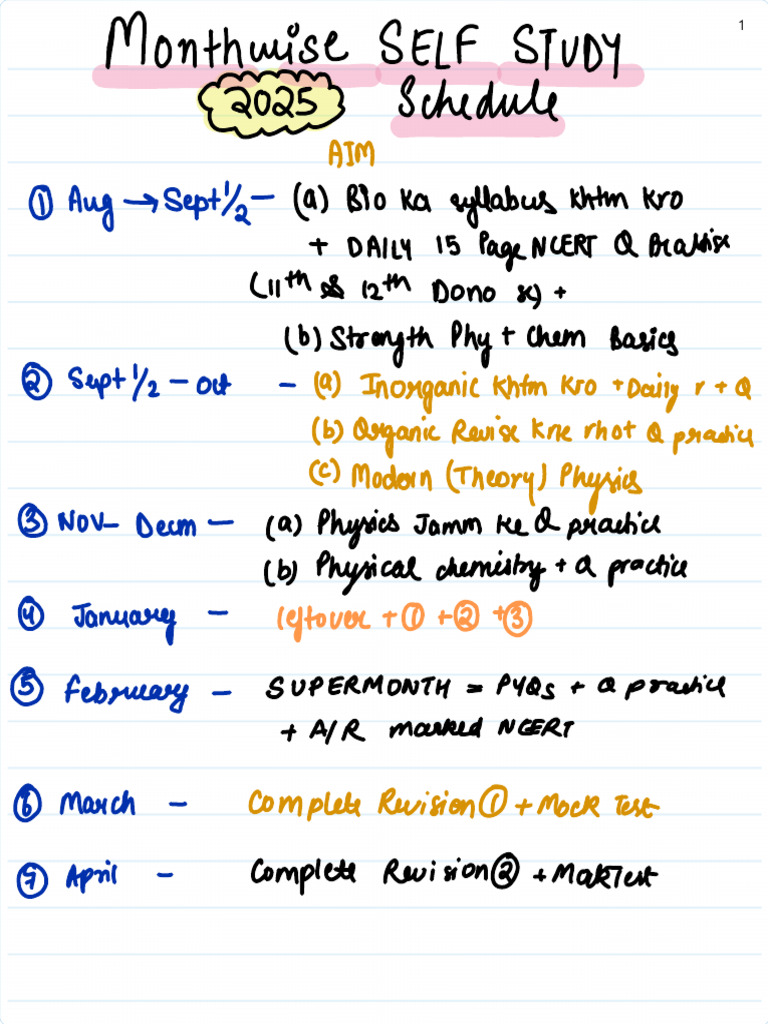 1
Monthwise SELF STUDY
2025 Schedule
AIM
① Aug → Sept 1/2 – (a) Bio ka syllabus khtm kro
+ DAILY 15 Page NCERT Q Practise
(11th & 12th Dono se) +
(b) Strength Phy + Chem Basics
② Sept 1/2 – Oct – (a) Inorganic khtm kro + Daily r + Q
(b) Organic Revise krke rhot Q practice
(c) Modern (Theory) Physics
③ NOV – Decm – (a) Physics Jamm ke Q practice
(b) Physical chemistry + Q practice
④ January – leftover + ① + ② + ③
⑤ february – SUPERMONTH = PYQs + Q practice
+ A/R marked NCERT
⑥ March – Complete Revision ① + Mock Test
⑦ April – Complete Revision ② + MakTest